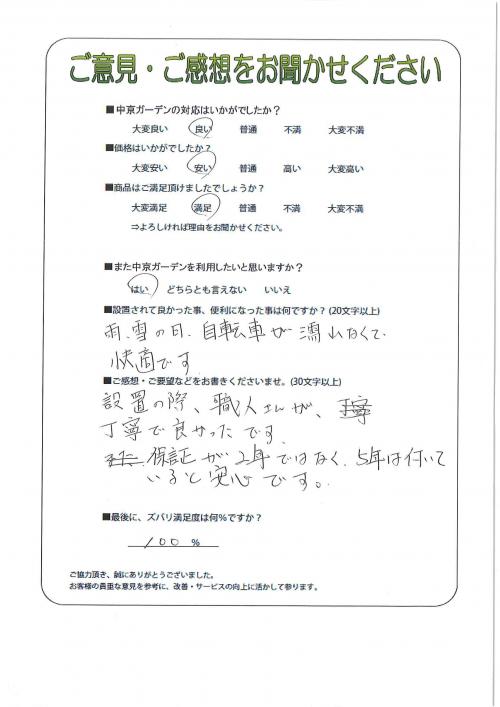 ご意見・ご感想をお聞かせください
■中京ガーデンの対応はいかがでしたか？
大変良い 良い 普通 不満 大変不満
■価格はいかがでしたか？
大変安い 安い 普通 高い 大変高い
■商品はご満足頂けましたでしょうか？
大変満足 満足 普通 不満 大変不満
⇒よろしければ理由をお聞かせください。
■また中京ガーデンを利用したいと思いますか？
はい どちらとも言えない いいえ
■設置されて良かった事、便利になった事は何ですか？(20文字以上)
雨、雪の日、自転車が濡れなくて、
快適です
■ご感想・ご要望などをお書きくださいませ。(30文字以上)
設置の際、職人さんが、
丁寧で良かったです。
保証が2年ではなく、5年は付いて
いると安心です。
■最後に、ズバリ満足度は何％ですか？
100 %
ご協力頂き、誠にありがとうございました。
お客様の貴重な意見を参考に、改善・サービスの向上に活かして参ります。